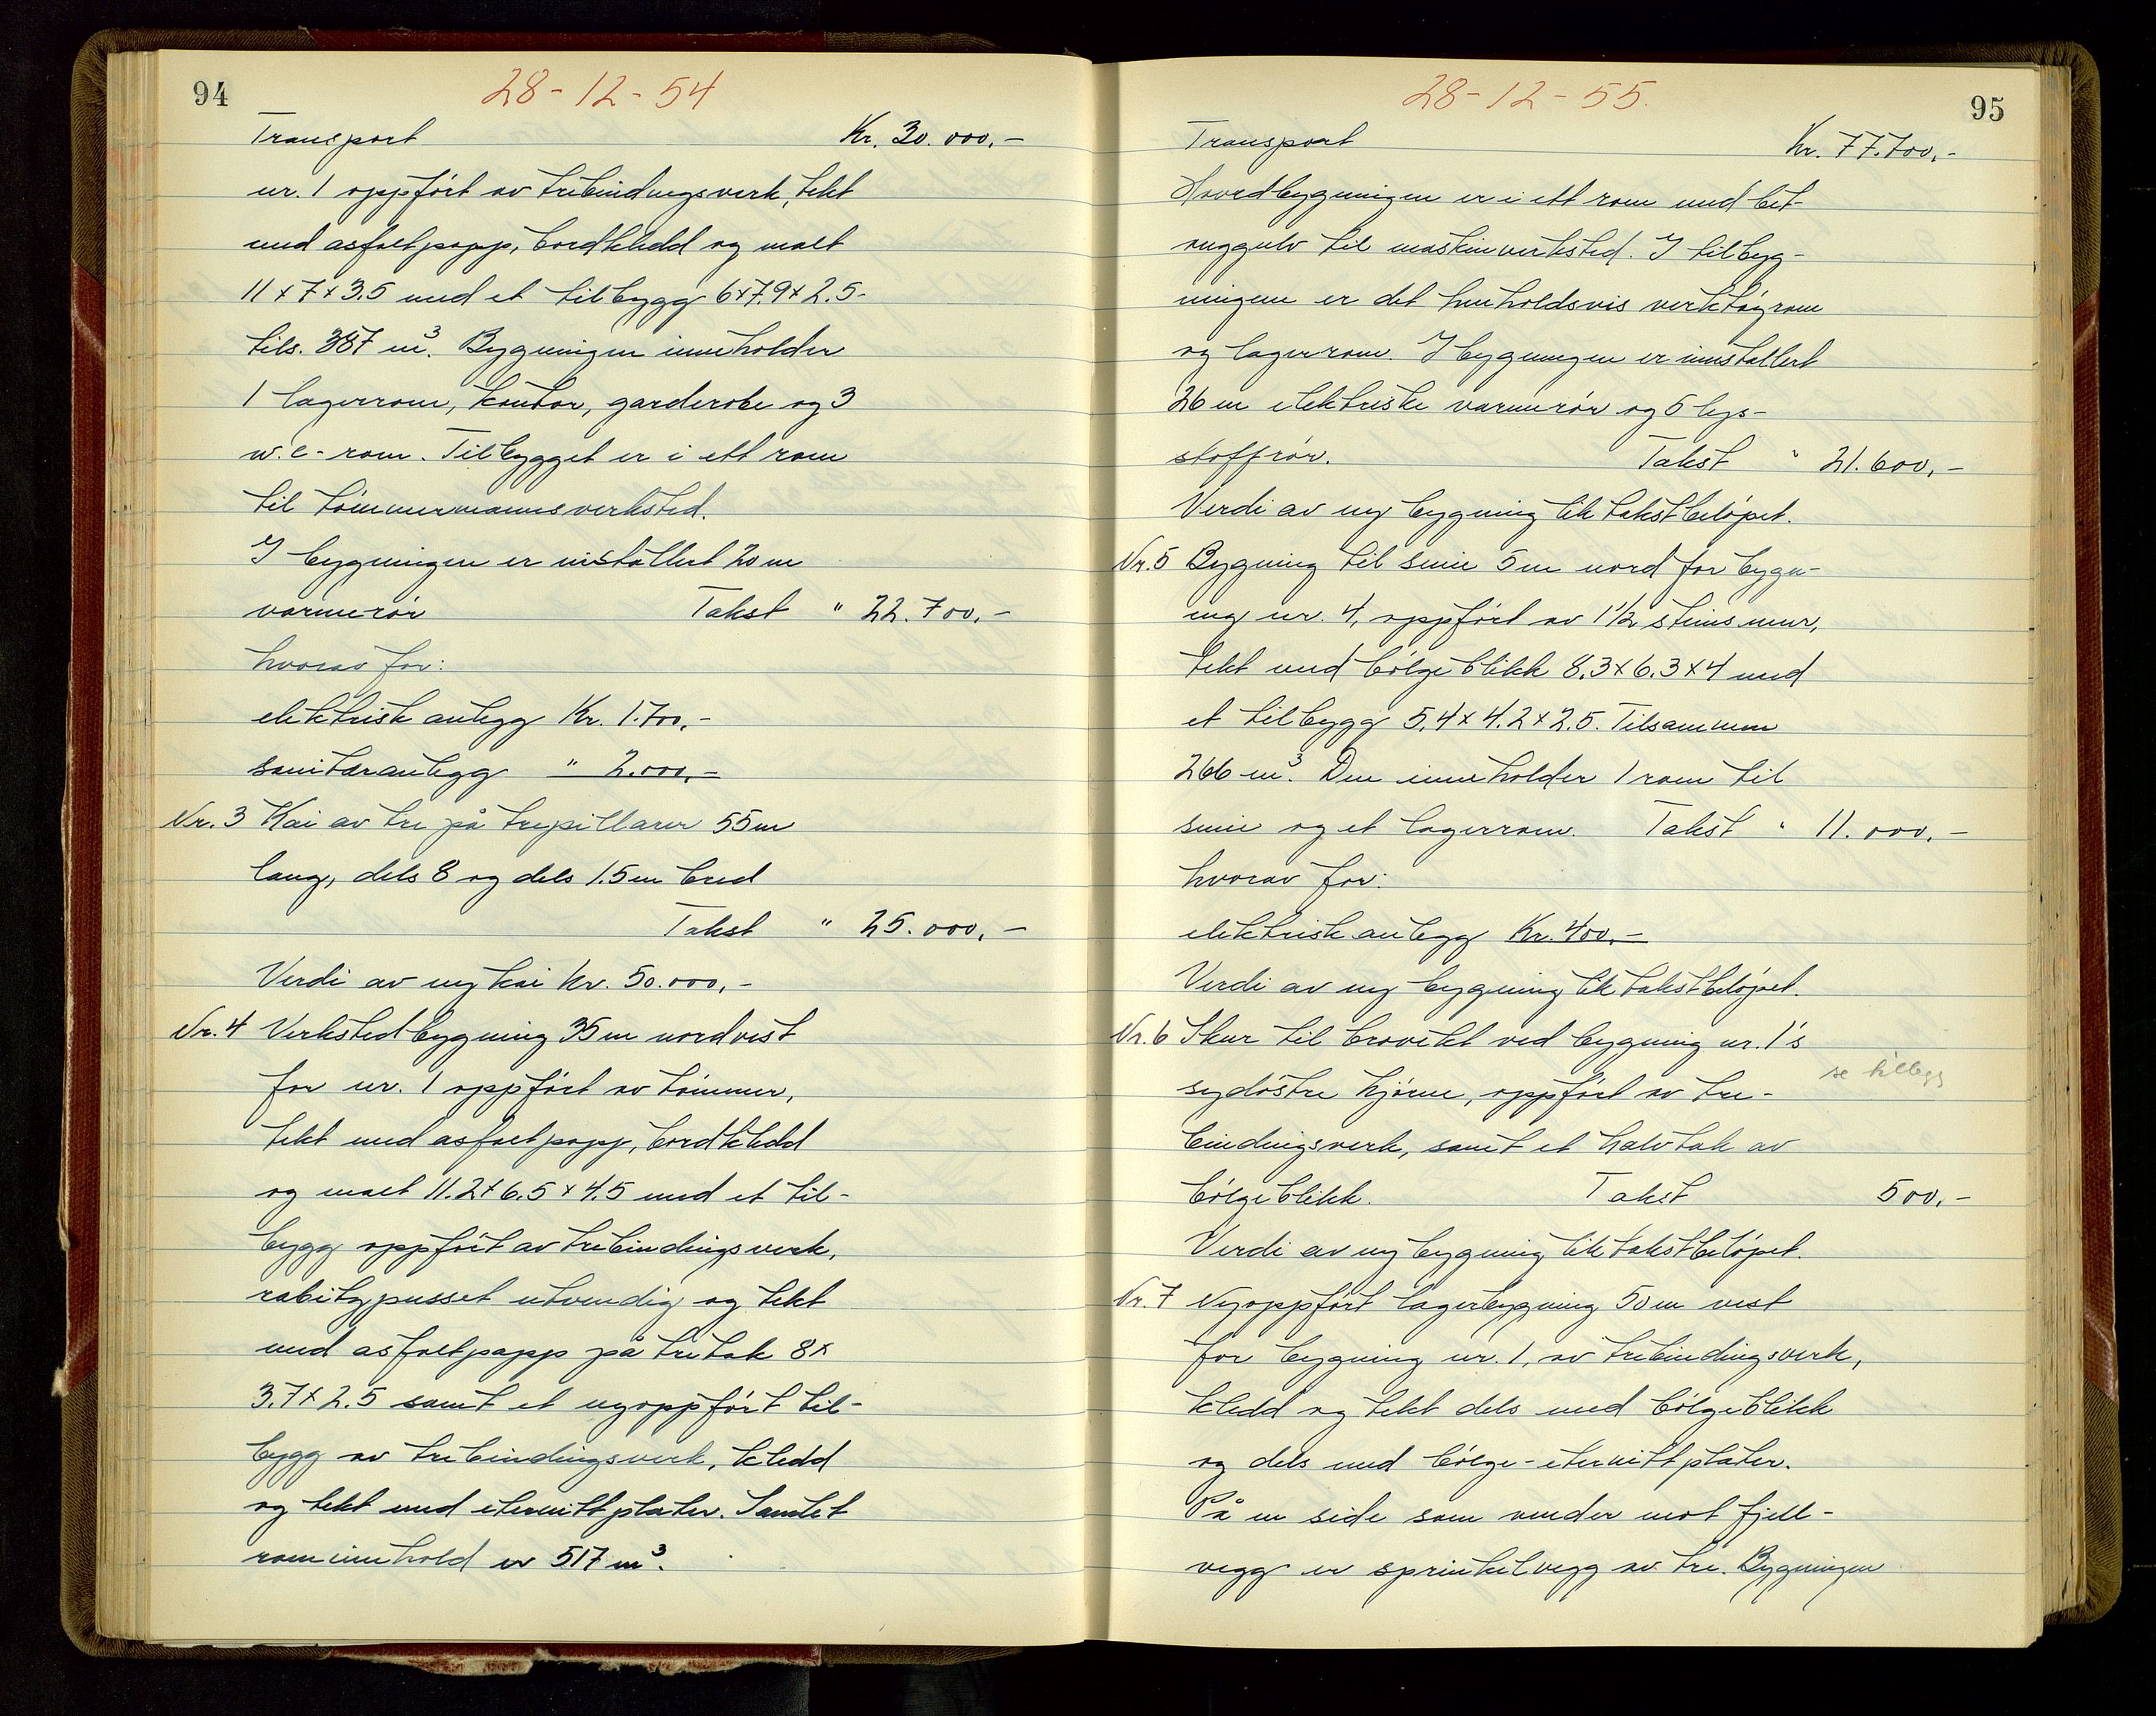 94
28-12-54
Transport Kr. 30.000,-
nr. 1 oppført av trebindingsverk, tekt
med asfaltpapp, bordkledd og malt
11 x 7 x 3.5 med et tilbygg 6x7.9x2.5-
tils. 387 m³. Bygningen inneholder
1 lagerrom, kontor, garderobe og 3
w.c-rom. Tilbygget er i ett rom
til tømmermannsverksted.
I bygningen er installert 20 m
varmerør Takst " 22.700,-
hvorav for:
elektrisk anlegg Kr. 1.700,-
sanitæranlegg " 2.000,-
Nr. 3 Kai av tre på trepillarer 55 m
lang, dels 8 og dels 1.5 m bred
Takst " 25.000,-
Verdi av ny kai kr. 50.000,-
Nr. 4 Verkstedbygning 35 m nordvest
for nr. 1 oppført av tømmer,
tekt med asfaltpapp, bordkledd
og malt 11.2 x 6.5 x 4.5 med et til-
bygg oppført av trebindingsverk,
rabitzpusset utvendig og tekt
med asfaltpapp på tretak 8 x
3.7 x 2.5 samt et nyoppført til-
bygg av trebindingsverk, kledd
og tekt med eternittplater. Samlet
rominnhold er 517 m³.
95
28-12-55.
Transport Kr. 77.700,-
Hovedbygningen er i ett rom med bet-
onggulv til maskinverksted. I tilbyg-
ningene er det henholdsvis verktøyrom
og lagerrom. I bygningen er innstallert
26 m elektriske varmerør og 5 lys-
stoffrør. Takst " 21.600,-
Verdi av ny bygning lik takstbeløpet.
Nr. 5 Bygning til smie 5 m nord for bygn-
ing nr. 4, oppført av 1½ steins mur,
tekt med bølgeblikk 8.3 x 6.3 x 4 med
et tilbygg 5.4 x 4.2 x 2.5. Tilsammen
266 m³. Den inneholder 1 rom til
smie og et lagerrom. Takst " 11.000,-
hvorav for:
elektrisk anlegg Kr. 400,-
Verdi av ny bygning lik takstbeløpet.
Nr. 6 Skur til brovekt ved bygning nr. 1's
se tillegg
sydøstre hjørne, oppført av tre-
bindingsverk, samt et halvtak av
bølgeblikk. Takst 500,-
Verdi av ny bygning lik takstbeløpet.
Nr. 7 Nyoppført lagerbygning 50 m vest
for bygning nr. 1, av trebindingsverk,
kledd og tekt dels med bølgeblikk
og dels med bølge-eternittplater.
På en side som vender mot fjell-
vegg er sprinkelvegg av tre. Bygningen